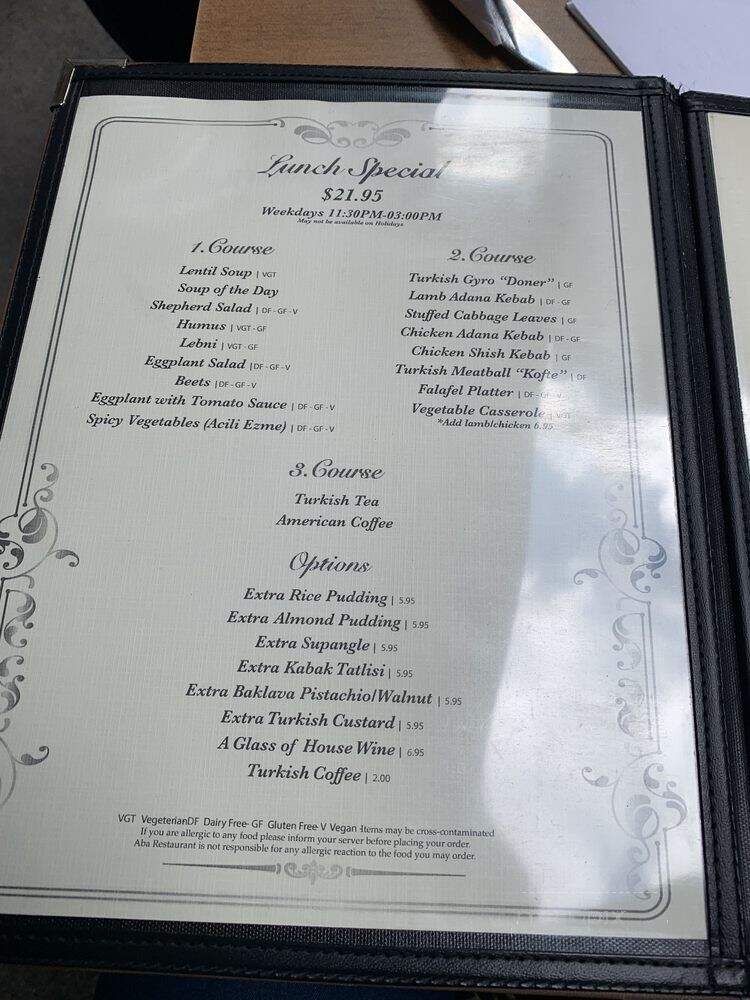 Lunch Special
$21.95
Weekdays 11:30PM-03:00PM
May not be available on Holidays
1.Course
Lentil Soup | VGT
Soup of the Day
Shepherd Salad | DF - GF - V
Humus | VGT - GF
Lebni | VGT - GF
Eggplant Salad |DF - GF - V
Beets |DF - GF - V
Eggplant with Tomato Sauce | DF - GF - V
Spicy Vegetables (Acili Ezme) | DF - GF - V
2.Course
Turkish Gyro “Doner” | GF
Lamb Adana Kebab | DF - GF
Stuffed Cabbage Leaves | GF
Chicken Adana Kebab | DF - GF
Chicken Shish Kebab | GF
Turkish Meatball “Kofte” | DF
Falafel Platter | DF - GF - V
Vegetable Casserole | VGT
*Add lamb/chicken 6.95
3.Course
Turkish Tea
American Coffee
Options
Extra Rice Pudding | 5.95
Extra Almond Pudding | 5.95
Extra Supangle | 5.95
Extra Kabak Tatlisi | 5.95
Extra Baklava Pistachio/Walnut | 5.95
Extra Turkish Custard | 5.95
A Glass of House Wine | 6.95
Turkish Coffee | 2.00
VGT VegeterianDF Dairy Free- GF Gluten Free-V Vegan -Items may be cross-contaminated
If you are allergic to any food please inform your server before placing your order.
Aba Restaurant is not responsible for any allergic reaction to the food you may order.